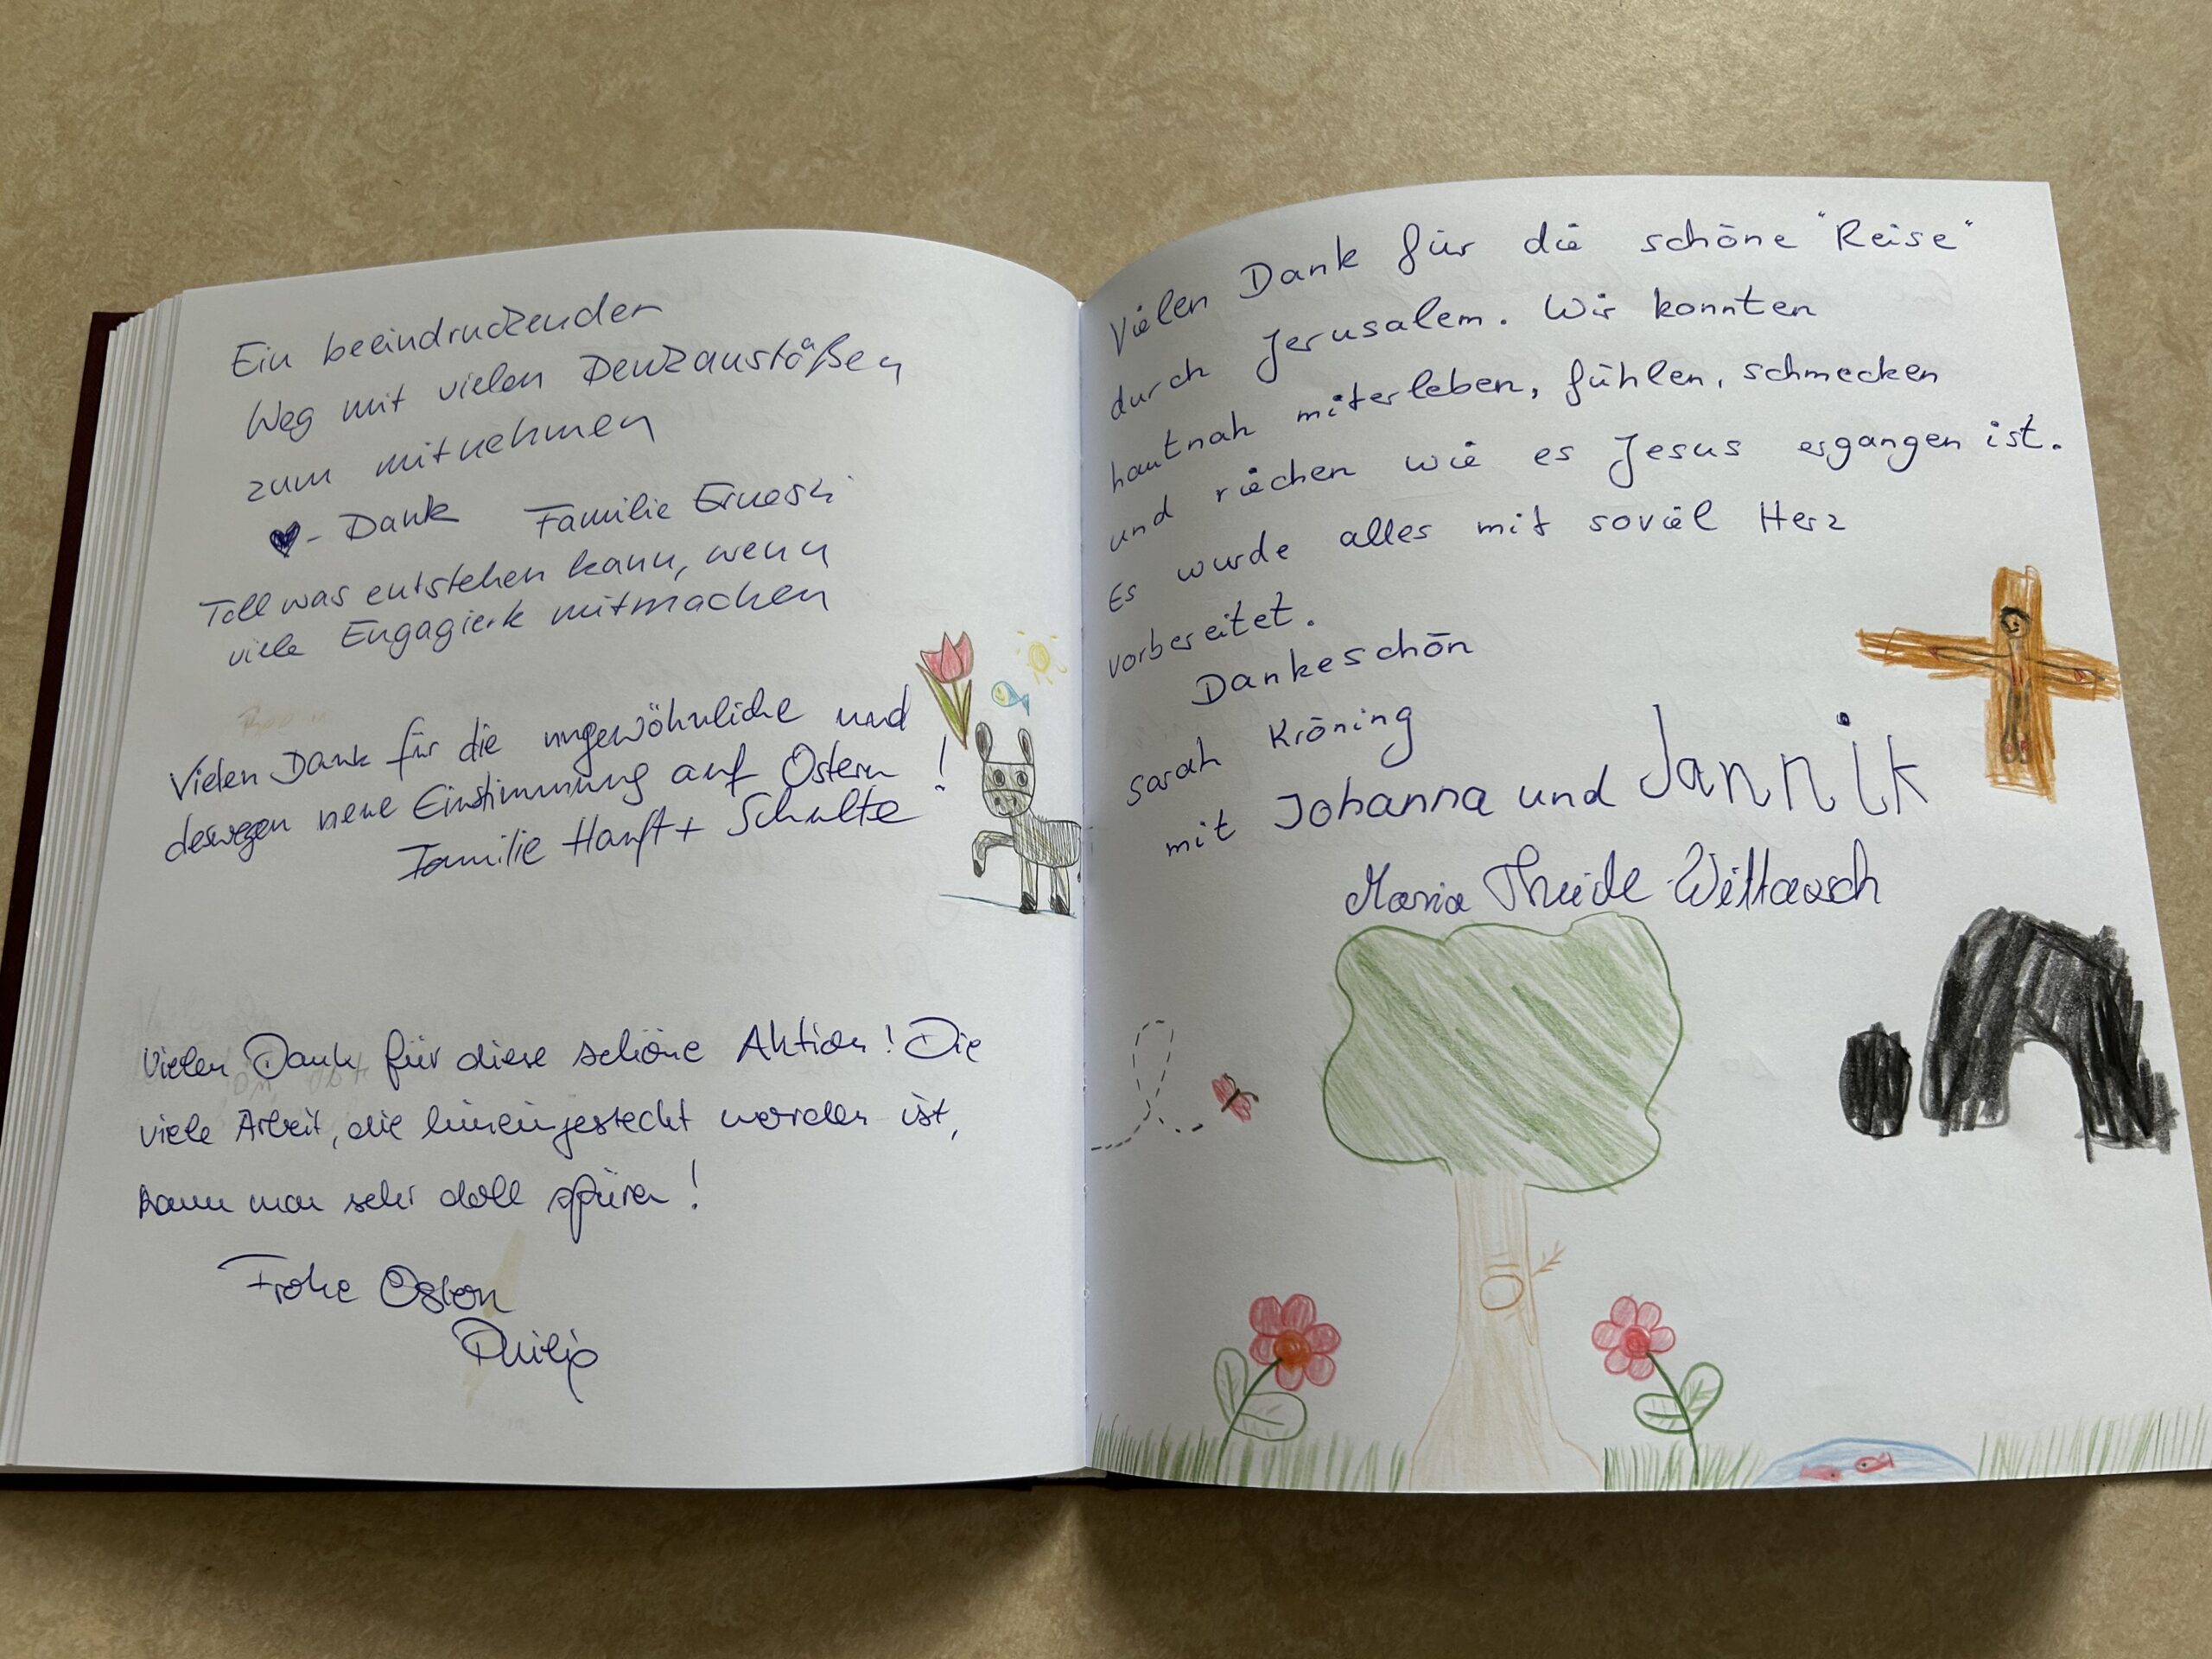 Ein beeindruckender
Weg mit vielen Denkanstößen
zum mitnehmen
- Dank Familie
Toll was entstehen kann, wenn
viele Engagierte mitmachen
Vielen Dank für die ungewöhnliche und
deswegen neue Einstimmung auf Ostern!
Familie Hanft + Schulte
Vielen Dank für diese schöne Aktion! Die
viele Arbeit, die hineingesteckt worden ist,
kann man sehr doll spüren!
Frohe Ostern
Philip
Vielen Dank für die schöne "Reise"
durch Jerusalem. Wir konnten
hautnah miterleben, fühlen, schmecken
und riechen wie es Jesus ergangen ist.
Es wurde alles mit soviel Herz
vorbereitet.
Dankeschön
Sarah Kröning
mit Johanna und Jannik
Maria